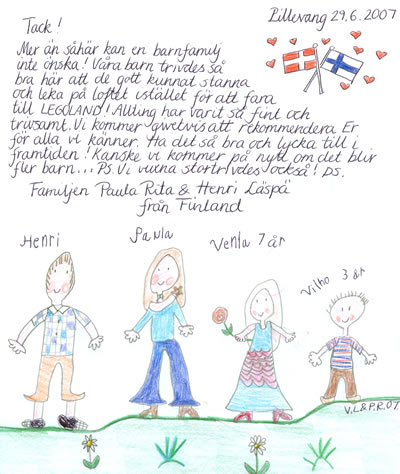 Lillevang 29.6.2007
Tack!
Mer än såhär kan en barnfamilj
inte önska! Våra barn trivdes så
bra här att de gott kunnat stanna
och leka på loftet istället för att fara
till LEGOLAND! Allting har varit så fint och
trivsamt. Vi kommer givetvis att rekommendera Er
för alla vi känner. Ha det så bra och lycka till i
framtiden! Kanske vi kommer på nytt om det blir
fler barn... PS. Vi vuxna stortrivdes också! DS.
Familjen Paula Rita & Henri Läspä
från Finland
Henri
Paula
Venla 7 år
Vilho 3 år
V.L&P.R.07